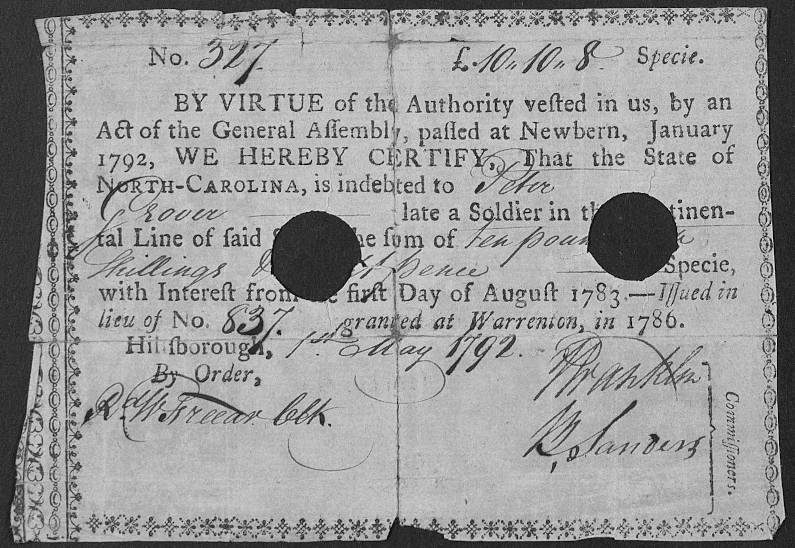 No. 327. £.10,,10,,8. Specie.
BY VIRTUE of the Authority veſted in us, by an
Act of the General Aſſembly, paſſed at Newbern, January
1792, WE HEREBY CERTIFY, That the State of
NORTH-CAROLINA, is indebted to Peter
Grover late a Soldier in th tinen-
tal Line of ſaid S he ſum of ten poun
Shillings & t pence Specie,
with Intereſt from the firſt Day of Auguſt 1783.—Iſſued in
lieu of No. 837. granted at Warrenton, in 1786.
Hillſborough, 1st May 1792.
By Order,
Franklin
Rd. W. Freear Clk.
Sanders
Commiſſioners.